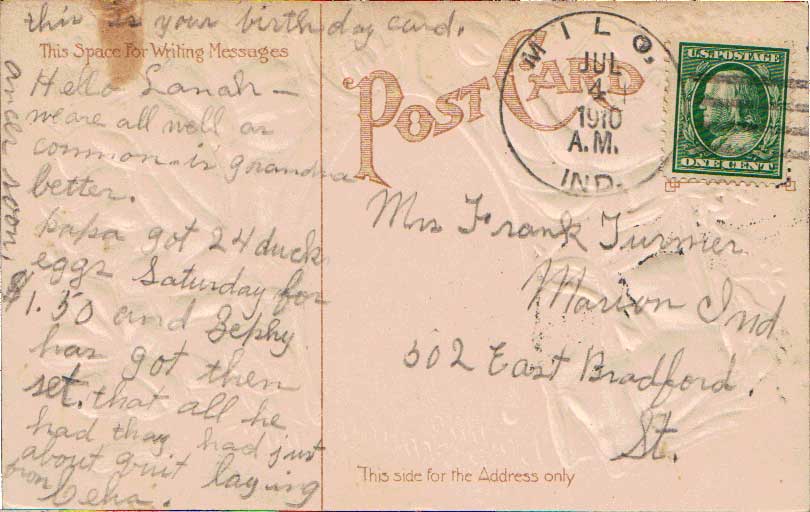 this is your birthday card.
This Space For Writing Messages
Hello Lanah —
we are all well as
common. is grandma
better.
papa got 24 duck
eggs Saturday for
$1.50 and Zephy
has got them
set. that all he
had thay had just
about quit laying
from Ceha.
ancer soon.
POST CARD
MILO,
JUL
4
1910
A.M.
IND.
U.S. POSTAGE
ONE CENT
Mrs Frank Turnier
Marion Ind
502 East Bradford.
St.
This side for the Address only